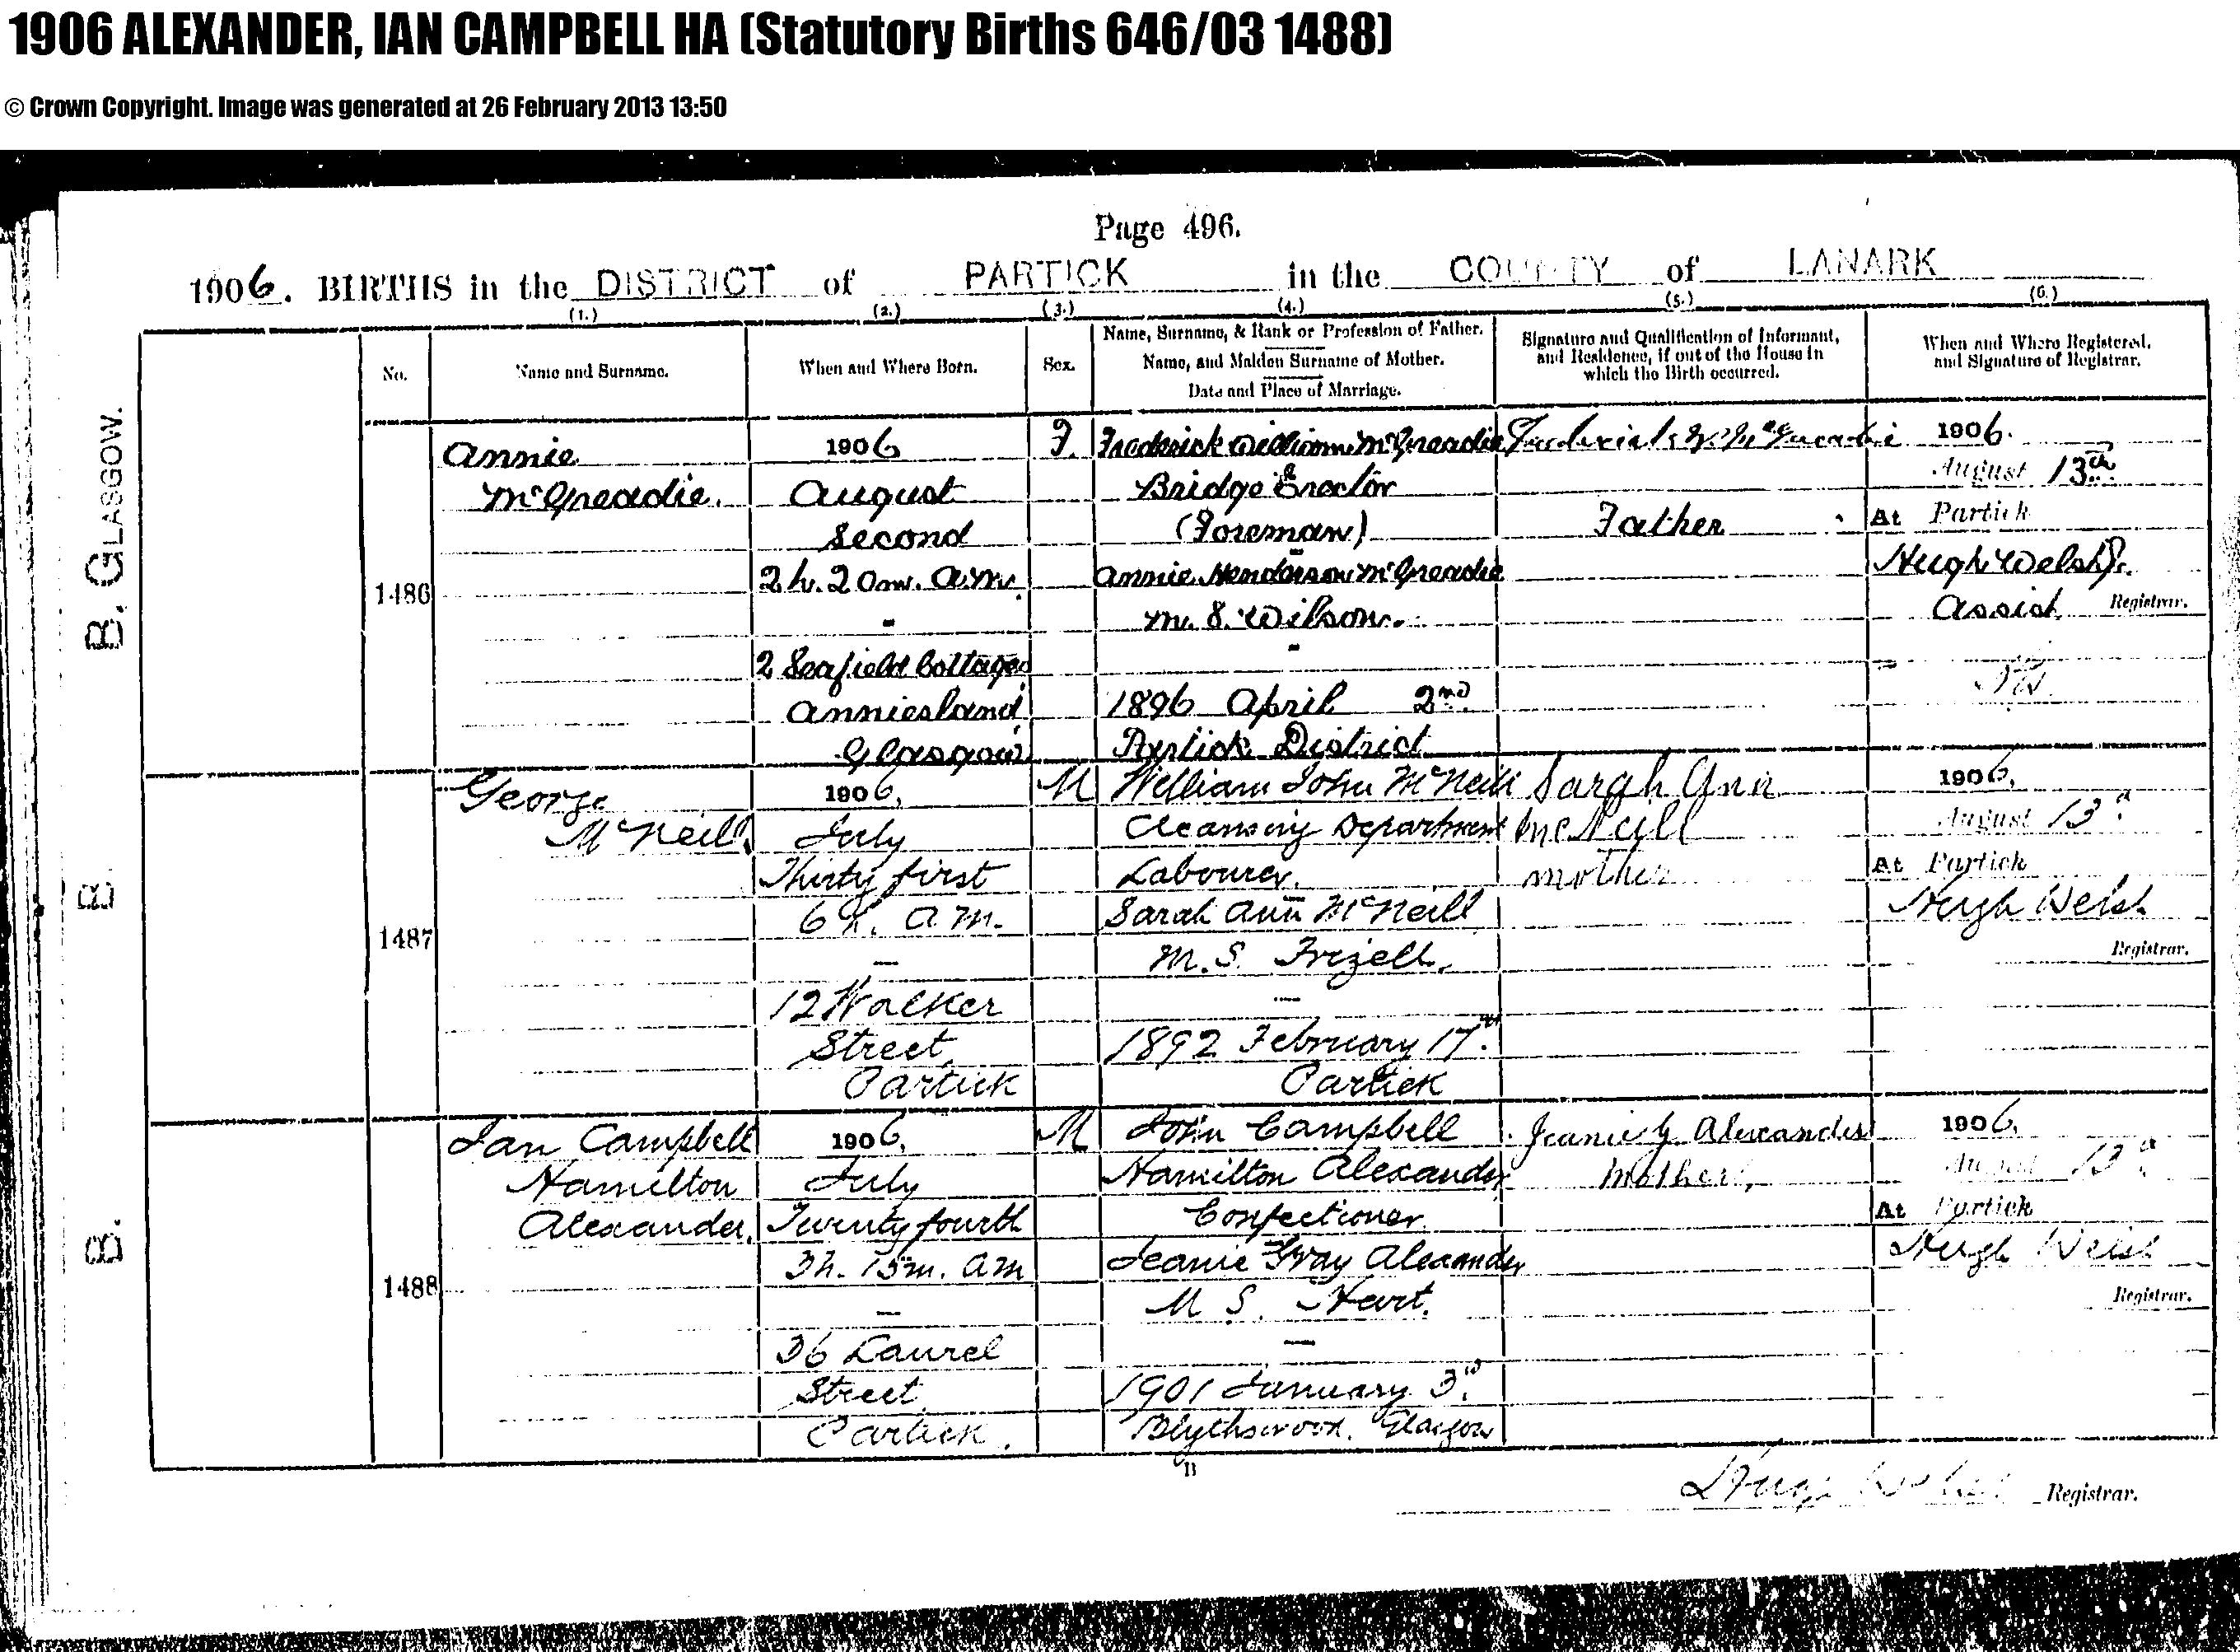 1906 ALEXANDER, IAN CAMPBELL HA (Statutory Births 646/03 1488)
© Crown Copyright. Image was generated at 26 February 2013 13:50
Page 496.
1906. BIRTHS in the DISTRICT of PARTICK in the COUNTY of LANARK
(1.) (2.) (3.) (4.) (5.) (6.)
No.
Name and Surname.
When and Where Born.
Sex.
Name, Surname, & Rank or Profession of Father.
Name, and Maiden Surname of Mother.
Date and Place of Marriage.
Signature and Qualification of Informant,
and Residence, if out of the House in
which the Birth occurred.
When and Where Registered,
and Signature of Registrar.
B. GLASGOW.
B.
B.
1486
Annie
McGreadie.
1906
August
Second
2h. 20m. A.M.
2 Seafield Cottages
Anniesland
Glasgow
F.
Frederick William McGreadie
Bridge Erector
(Foreman)
Annie Henderson McGreadie
M. S. Wilson.
1896 April 2nd
Partick District
Father
1906.
August 13th
At Partick
Hugh Welsh
Assist Registrar.
1487
George
McNeill
1906.
July
Thirty first
6h. A.M.
12 Walker
Street
Partick
M
William John McNeill
Cleansing Department
Labourer.
Sarah Ann McNeill
M.S. Frizell.
1892 February 17th
Partick
Sarah Ann
McNeill
mother
1906.
August 13th
At Partick
Hugh Welsh
Registrar.
1488
Ian Campbell
Hamilton
Alexander.
1906.
July
Twenty fourth
3h. 15m. AM
36 Laurel
Street
Partick.
M
John Campbell
Hamilton Alexander
Confectioner
Jeanie Gray Alexander
M S. Hart.
1901 January 3rd
Blythswood. Glasgow
Jeanie G. Alexander
Mother,
1906.
August 13th
At Partick
Hugh Welsh
Registrar.
Hugh Welsh Registrar.